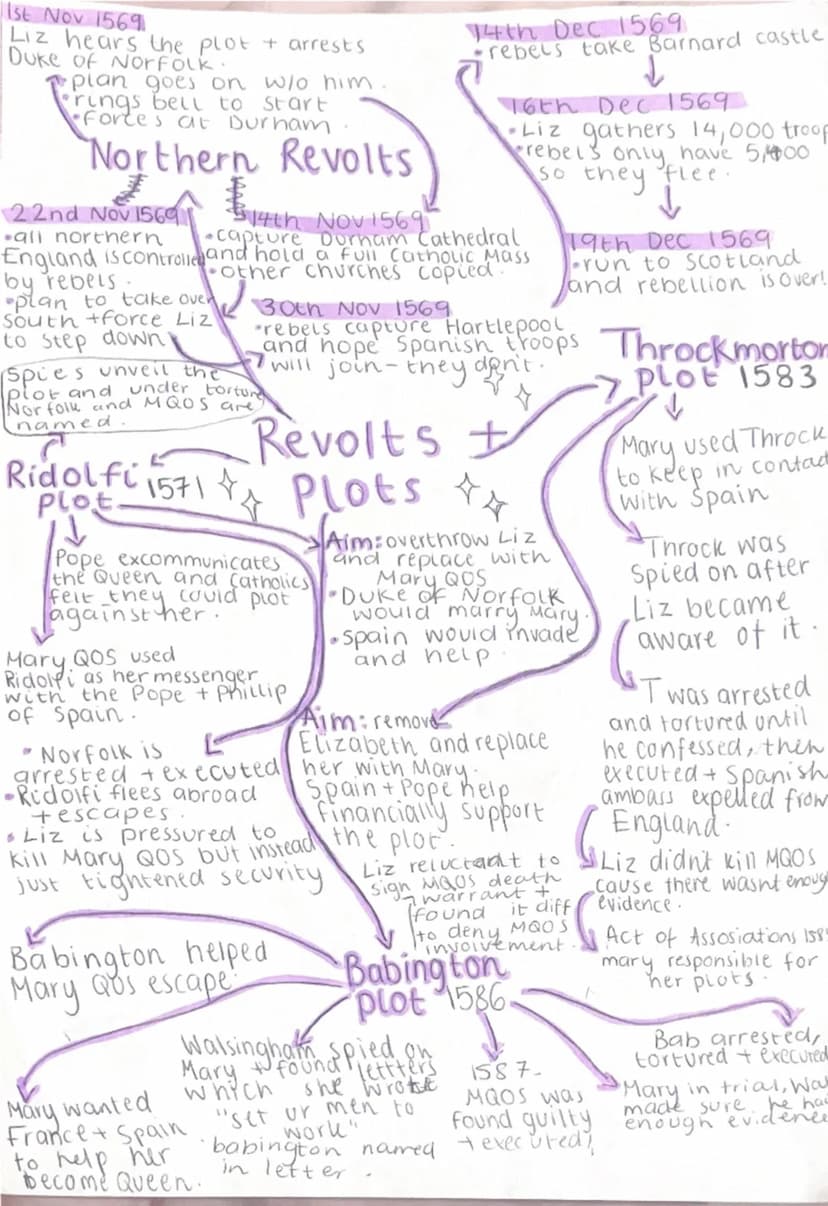 1st Nov 1569
Liz hears the plot + arrests
Duke of Norfolk.
• plan goes on w/o him.
• rings bell to start
• forces at Durham.
Northern Revolts
14th Dec 1569
• rebels take Barnard castle
16th Dec 1569
• Liz gathers 14,000 troop
• rebels only have 5,400
so they flee.
19th Dec 1569
• run to Scotland
and rebellion is over!
22nd Nov 1569
• all northern
England is controlled
by rebels.
• plan to take over
south + force Liz
to step down
14th Nov 1569
• capture Durham Cathedral
and hold a full Catholic Mass
• other churches copied.
30th Nov 1569
• rebels capture Hartlepool
and hope Spanish troops
will join - they don't.
Spies unveil the
plot and under torture
Norfolk and MQOS are
named.
Revolts +
Plots
Ridolfi
plot 1571
Pope excommunicates
the Queen and catholics
felt they could plot
against her.
Mary QOS used
Ridolfi as her messenger
with the Pope + Phillip
of Spain.
• Norfolk is
arrested + executed
• Ridolfi flees abroad
+ escapes.
• Liz is pressured to
kill Mary QOS but instead
just tightened security
Aim: overthrow Liz
and replace with
Mary QOS
• Duke of Norfolk
would marry Mary.
• Spain would invade
and help.
Throckmorton
plot 1583
Mary used Throck
to keep in contact
with Spain
Throck was
spied on after
Liz became
aware of it.
T was arrested
and tortured until
he confessed, then
executed + Spanish
ambass expelled from
England.
Liz didn't kill MQOS
cause there wasnt enough
evidence.
Act of Assosiations 158
mary responsible for
her plots.
Aim: remove
Elizabeth and replace
her with Mary.
Spain + Pope help
financially support
the plot.
Liz reluctant to
sign MQOS death
warrant +
found it diff
to deny MQOS
involvement.
Babington
plot 1586
Babington helped
Mary QOS escape.
Mary wanted
France + Spain
to help her
become Queen.
Walsingham spied on
Mary + found lettters
which she wrote
"set ur men to
work"
babington named
in letter.
1587-
MQOS was
found guilty
+ executed!
Bab arrested,
tortured + executed
Mary in trial, Wal
made sure he had
enough evidence